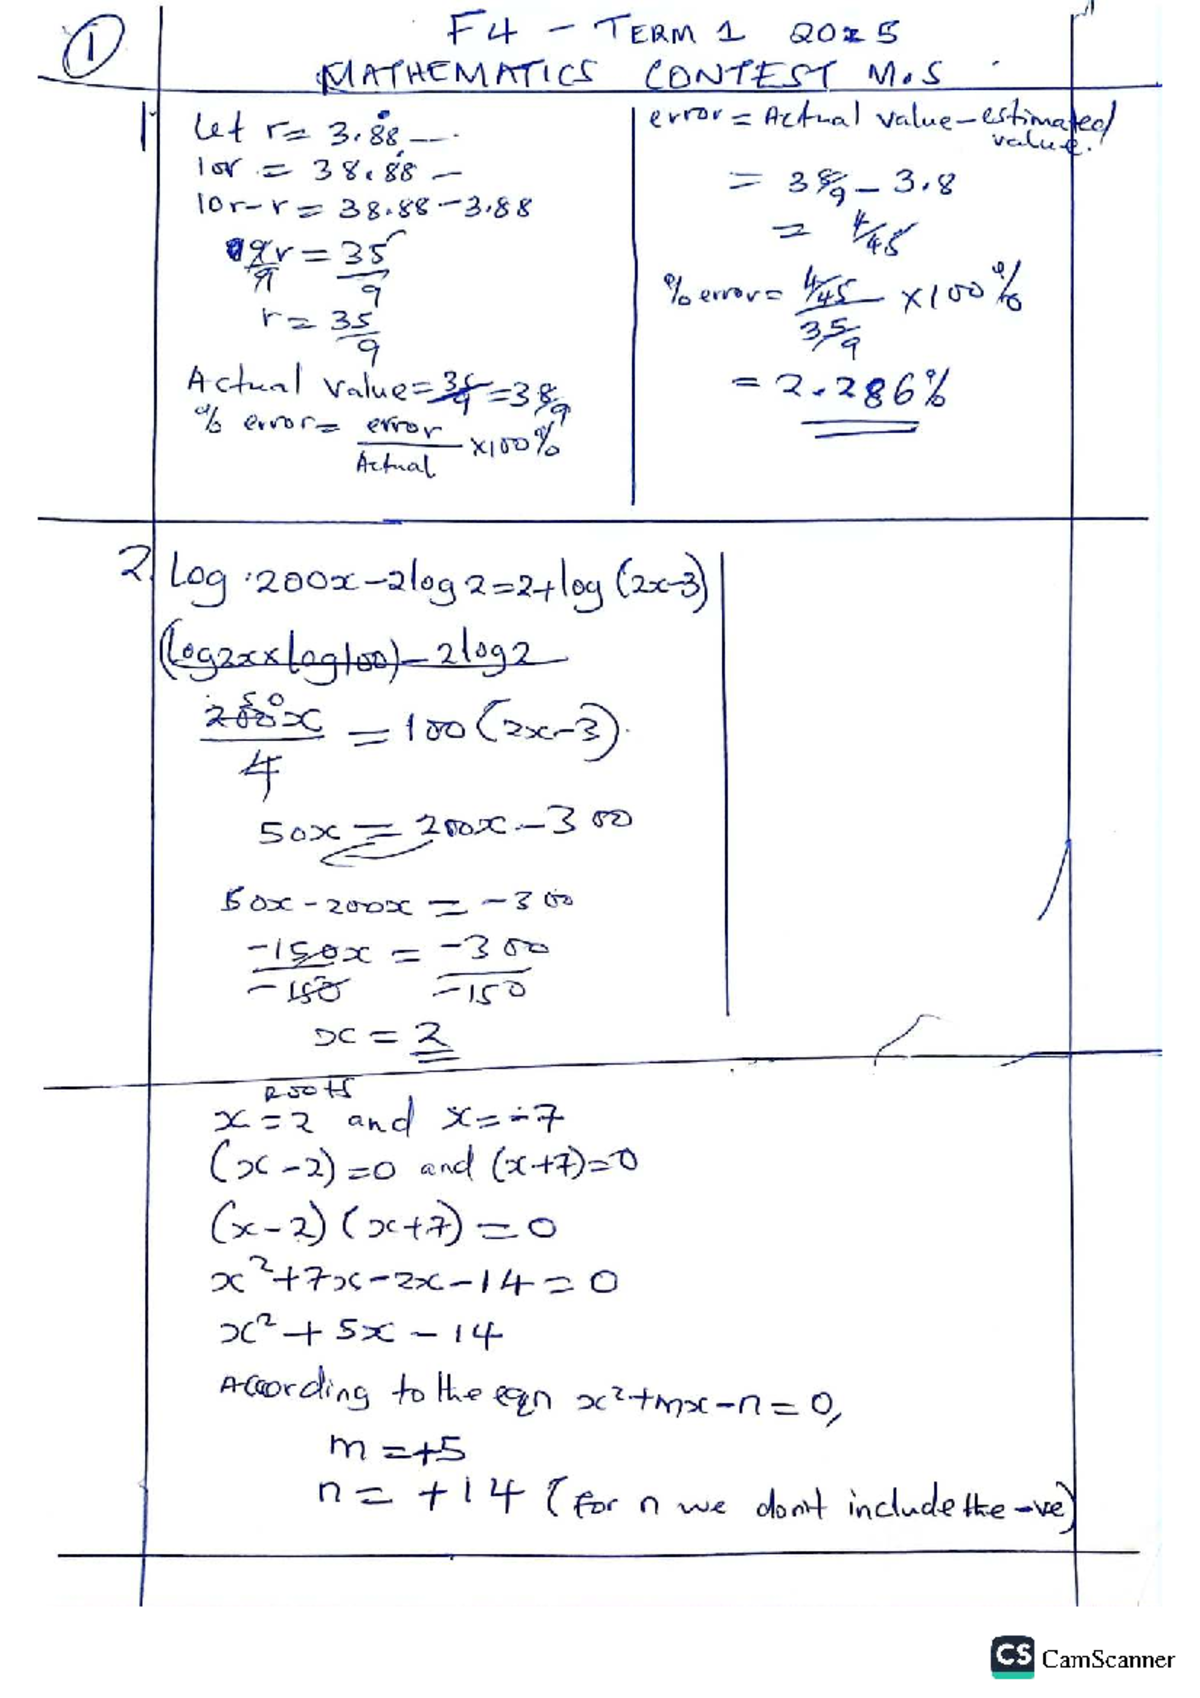 1
F4 - TERM 1 2025
MATHEMATICS CONTEST M.S
1.
Let r = 3.88̇ ---
10r = 38.88̇ -
10r - r = 38.88 - 3.88
9r/9 = 35/9
r = 35/9
Actual value = 35/9 = 3 8/9
% error = error/Actual ×100%
error = Actual value - estimated value.
= 3 8/9 - 3.8
= 4/45
% error = 4/45 / 35/9 ×100%
= 2.286%
2. Log 200x - 2log 2 = 2 + log (2x-3)
(Log2x × Log100) - 2log2
200x/4 = 100(2x-3)
50
50x = 200x - 300
50x - 200x = -300
-150x/-150 = -300/-150
x = 2
Roots
x = 2 and x = -7
(x-2) = 0 and (x+7) = 0
(x-2)(x+7) = 0
x² + 7x - 2x - 14 = 0
x² + 5x - 14
According to the eqn x² + mx - n = 0,
m = +5
n = +14 (for n we don't include the -ve)
CS CamScanner